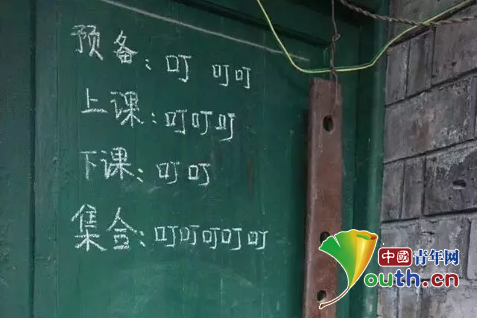 预备：叮 叮叮
上课：叮叮叮
下课：叮叮
集合：叮叮叮叮叮
中國青年网
youth.cn